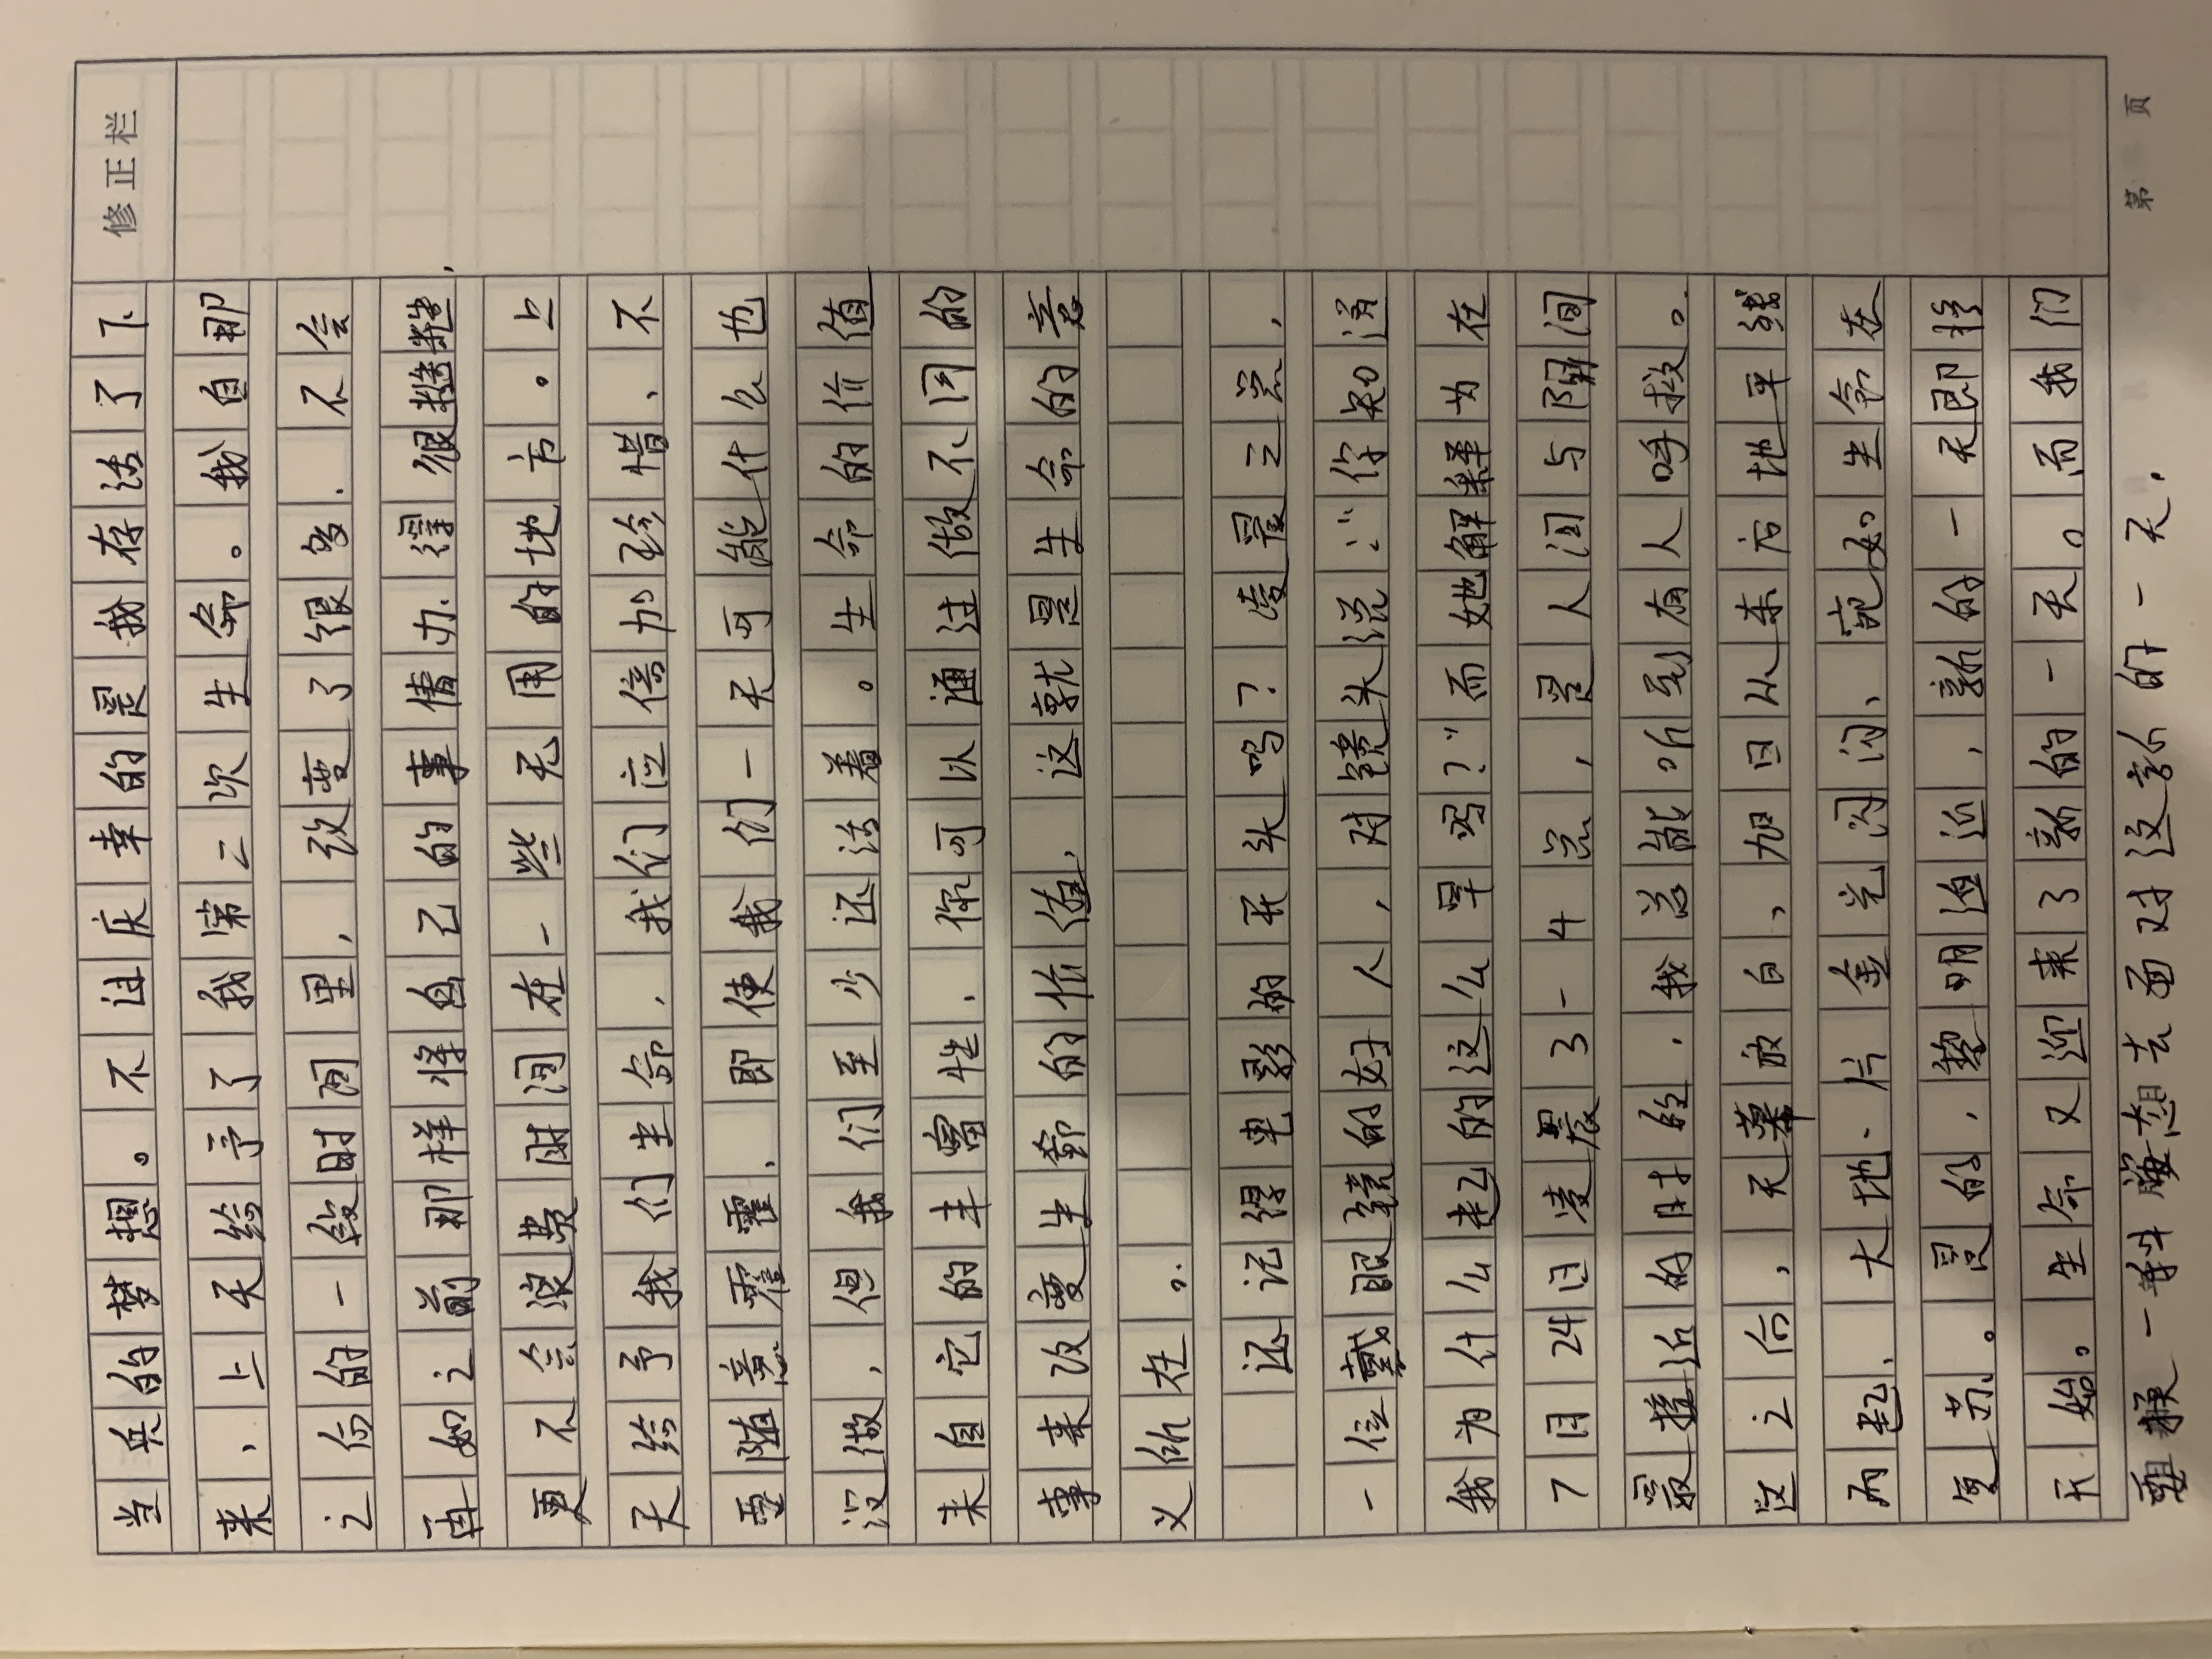 修正栏
当兵的梦想。不过庆幸的是我存活了下
来、上天给予了我第二次生命。我自那
之后的一段时间里，改变了很多．不会
再如之前那样将自己的事情办得很糙糙，
更不会浪费时间在一些无用的地方。上
天给予我们生命，我们应倍加珍惜、不
要随意霍霍．即使我们一天可能什么也
没做，但我们至少还活着。生命的价值
来自它的丰富性．你可以通过做不同的
事来改变生命的价值，这就是生命的意
义所在。
还记得电影的开头吗？凌晨三点，
一位戴眼镜的好人，对镜头说：“你知道
我为什么起的这么早吗？”而她解释为在
7月24日凌晨3-4点，是人间与阴间
最接近的时段．我总能听到有人呼救。
这之后，天幕放白、加日从东方地平线
而起、大地、片金光闪闪、宛如生命在
复苏。是的，黎明迫近，新的一天即将
开始。生命又迎来了新的一天。而我们
要换一种胸态想去面对这新的一天．
第 页